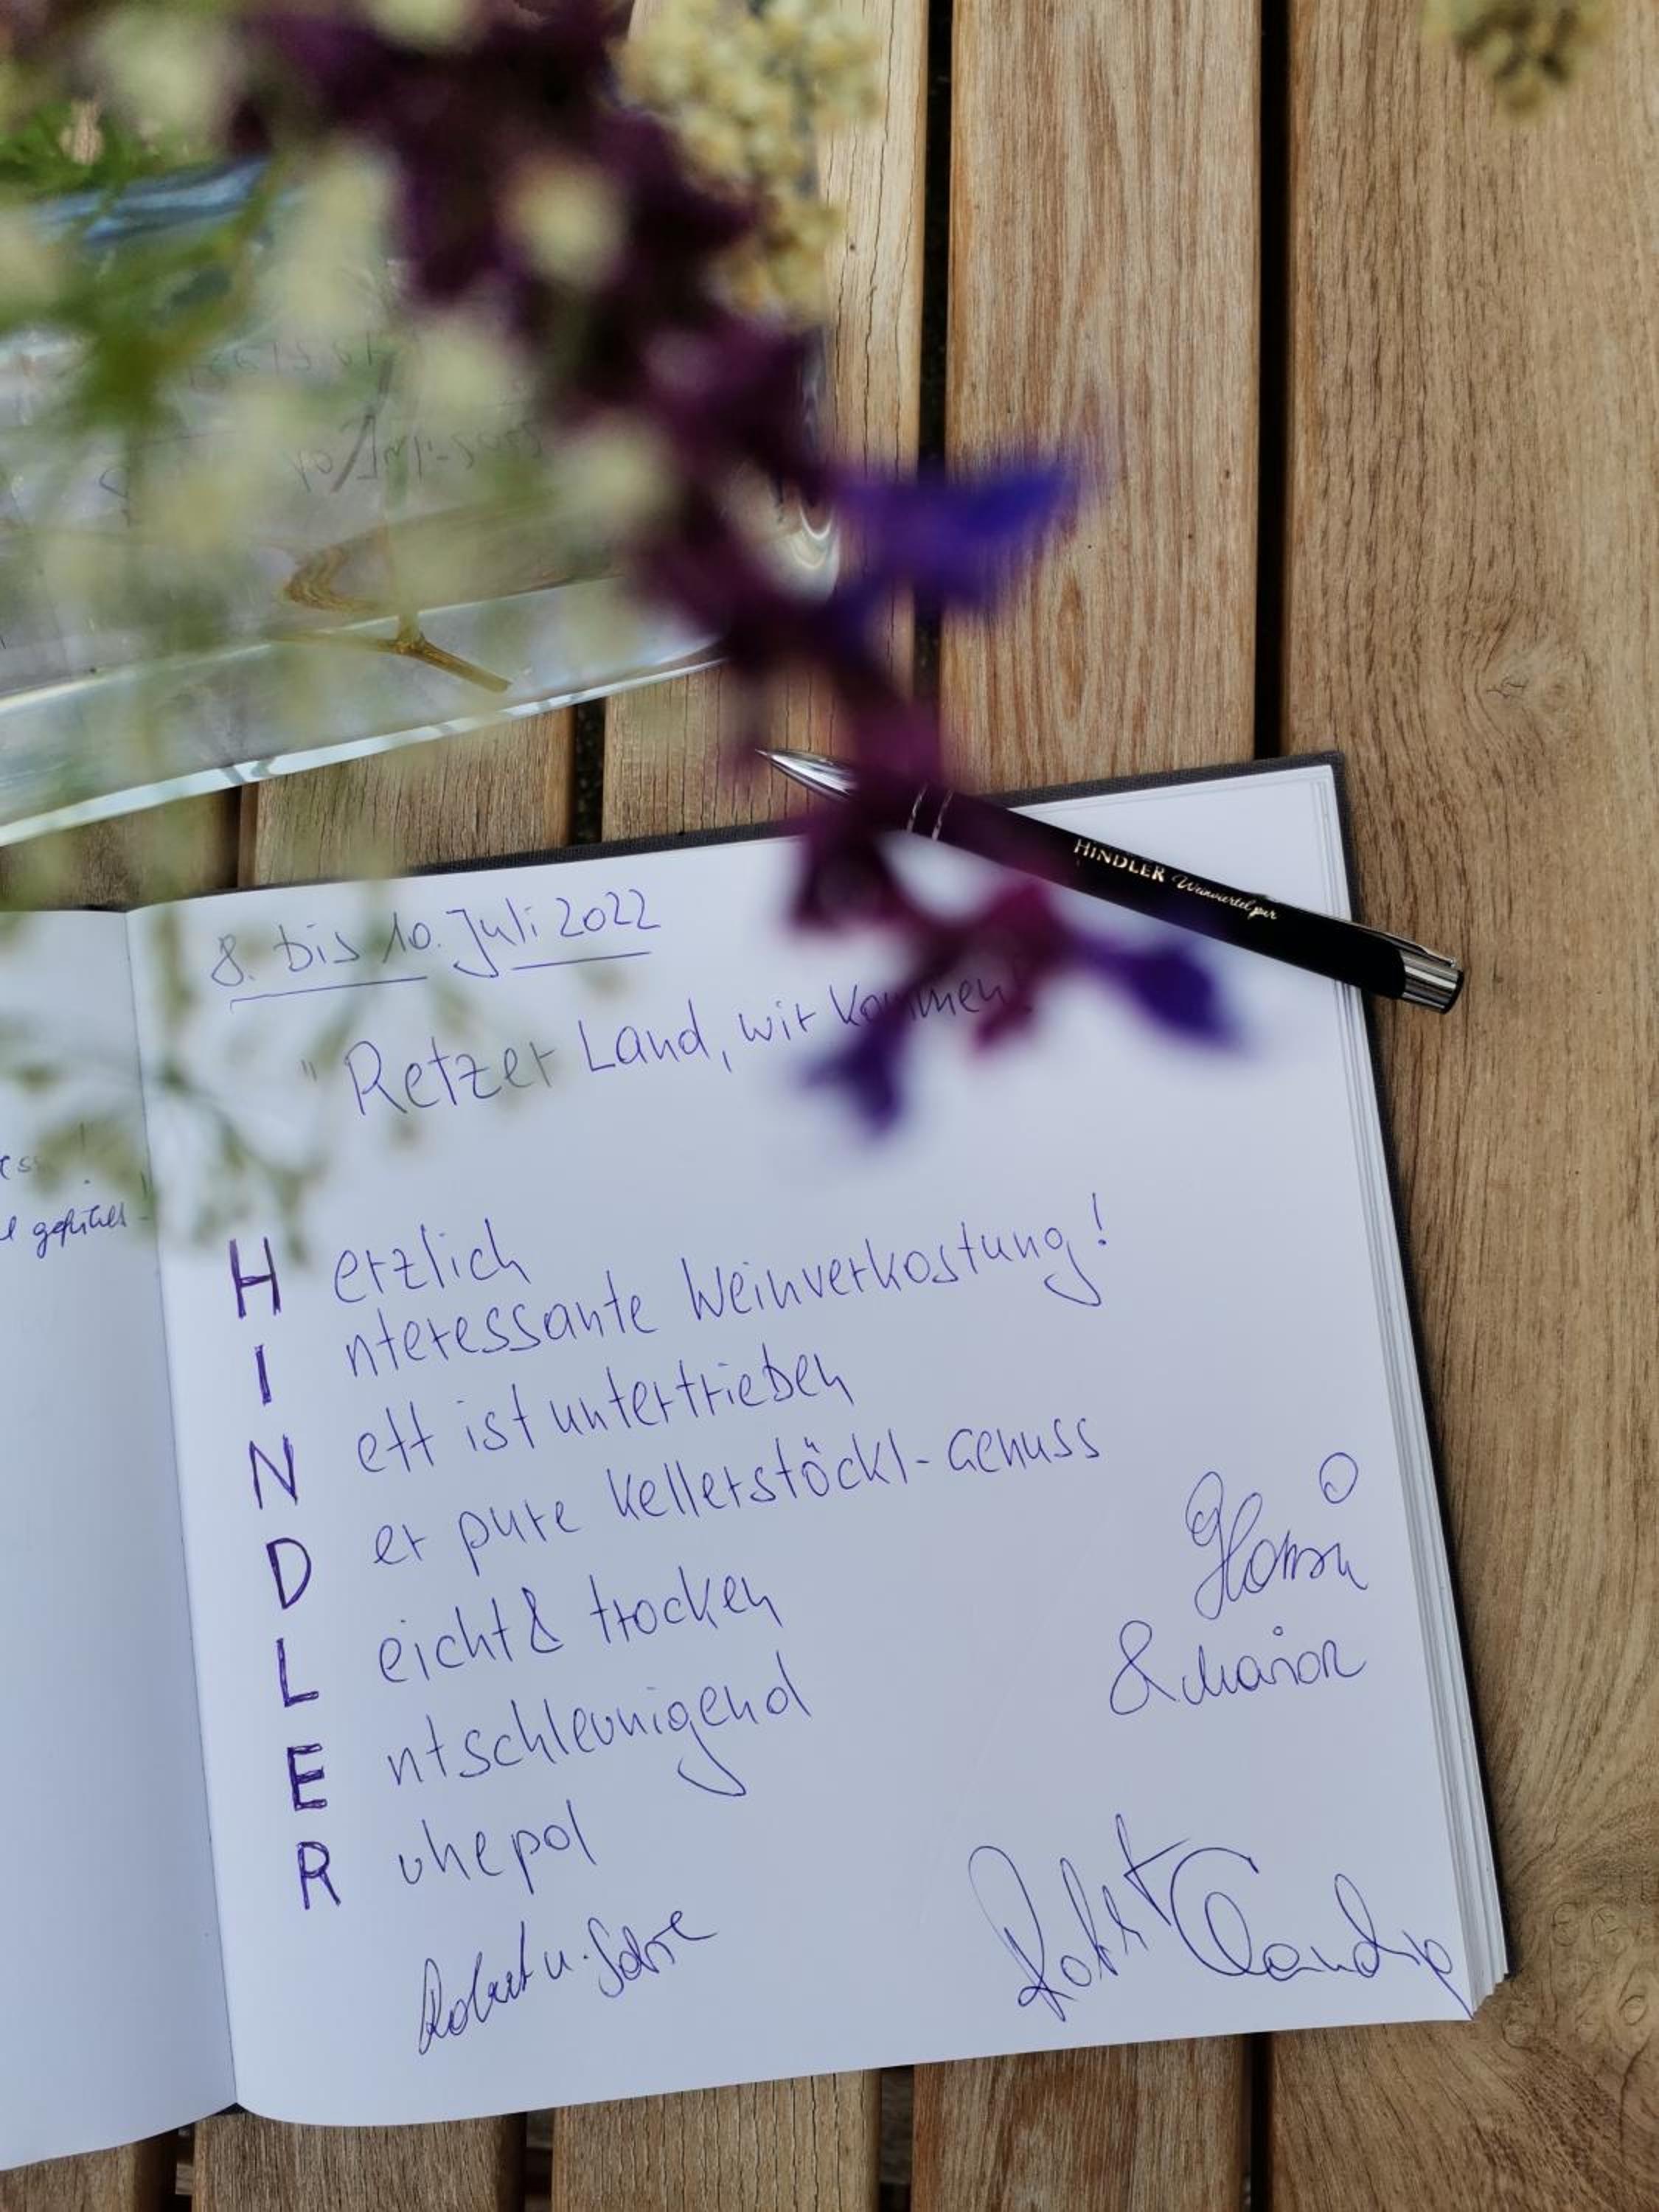 HINDLER Weinviertel pur
8. bis 10. Juli 2022
"Retzer Land, wir kommen
gefühlt
Herzlich
Interessante Weinverkostung!
Nett ist untertrieben
Der pure Kellerstöckl-Genuss
Leicht & trocken
Entschleunigend
Ruhepol
&
Robert u.
Robert Claudia